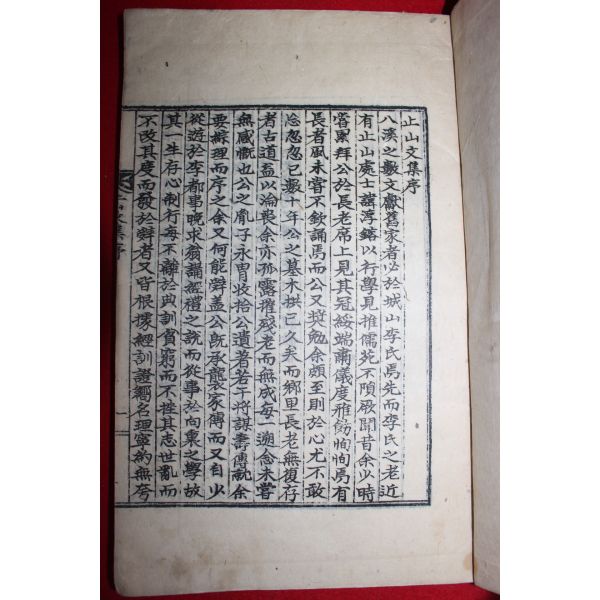 止山文集序
八溪之數文獻舊家者必於城山李氏焉先而李氏之老近
有止山處士諱淳鎔以行學見推儒苑不隕厥聞昔余少時
嘗累拜公於長老席上見其冠綏端肅儀度雅飭恂恂焉有
長者風未嘗不欽誦焉而公又奬勉余頗至則於心尤不敢
忘忽忽已數十年公之墓木拱已久矣而鄉里長老無復存
者古道益以淪喪余亦孤露摧殘老而無成每一遡念未嘗
無感慨也公之胄子永胃收拾公遺著若干將謀壽傳託余
要縣理而序之余又何能辭盖公旣承襲家傳而又自少
從遊於李都事晩求翁誦經禮之說而從事於向裏之學故
其一生存心制行每不離於典訓貧窮而不挫其志世亂而
不改其度而發於辭者又皆根據經訓證嚮名理寧約無夸
止山文集序
一